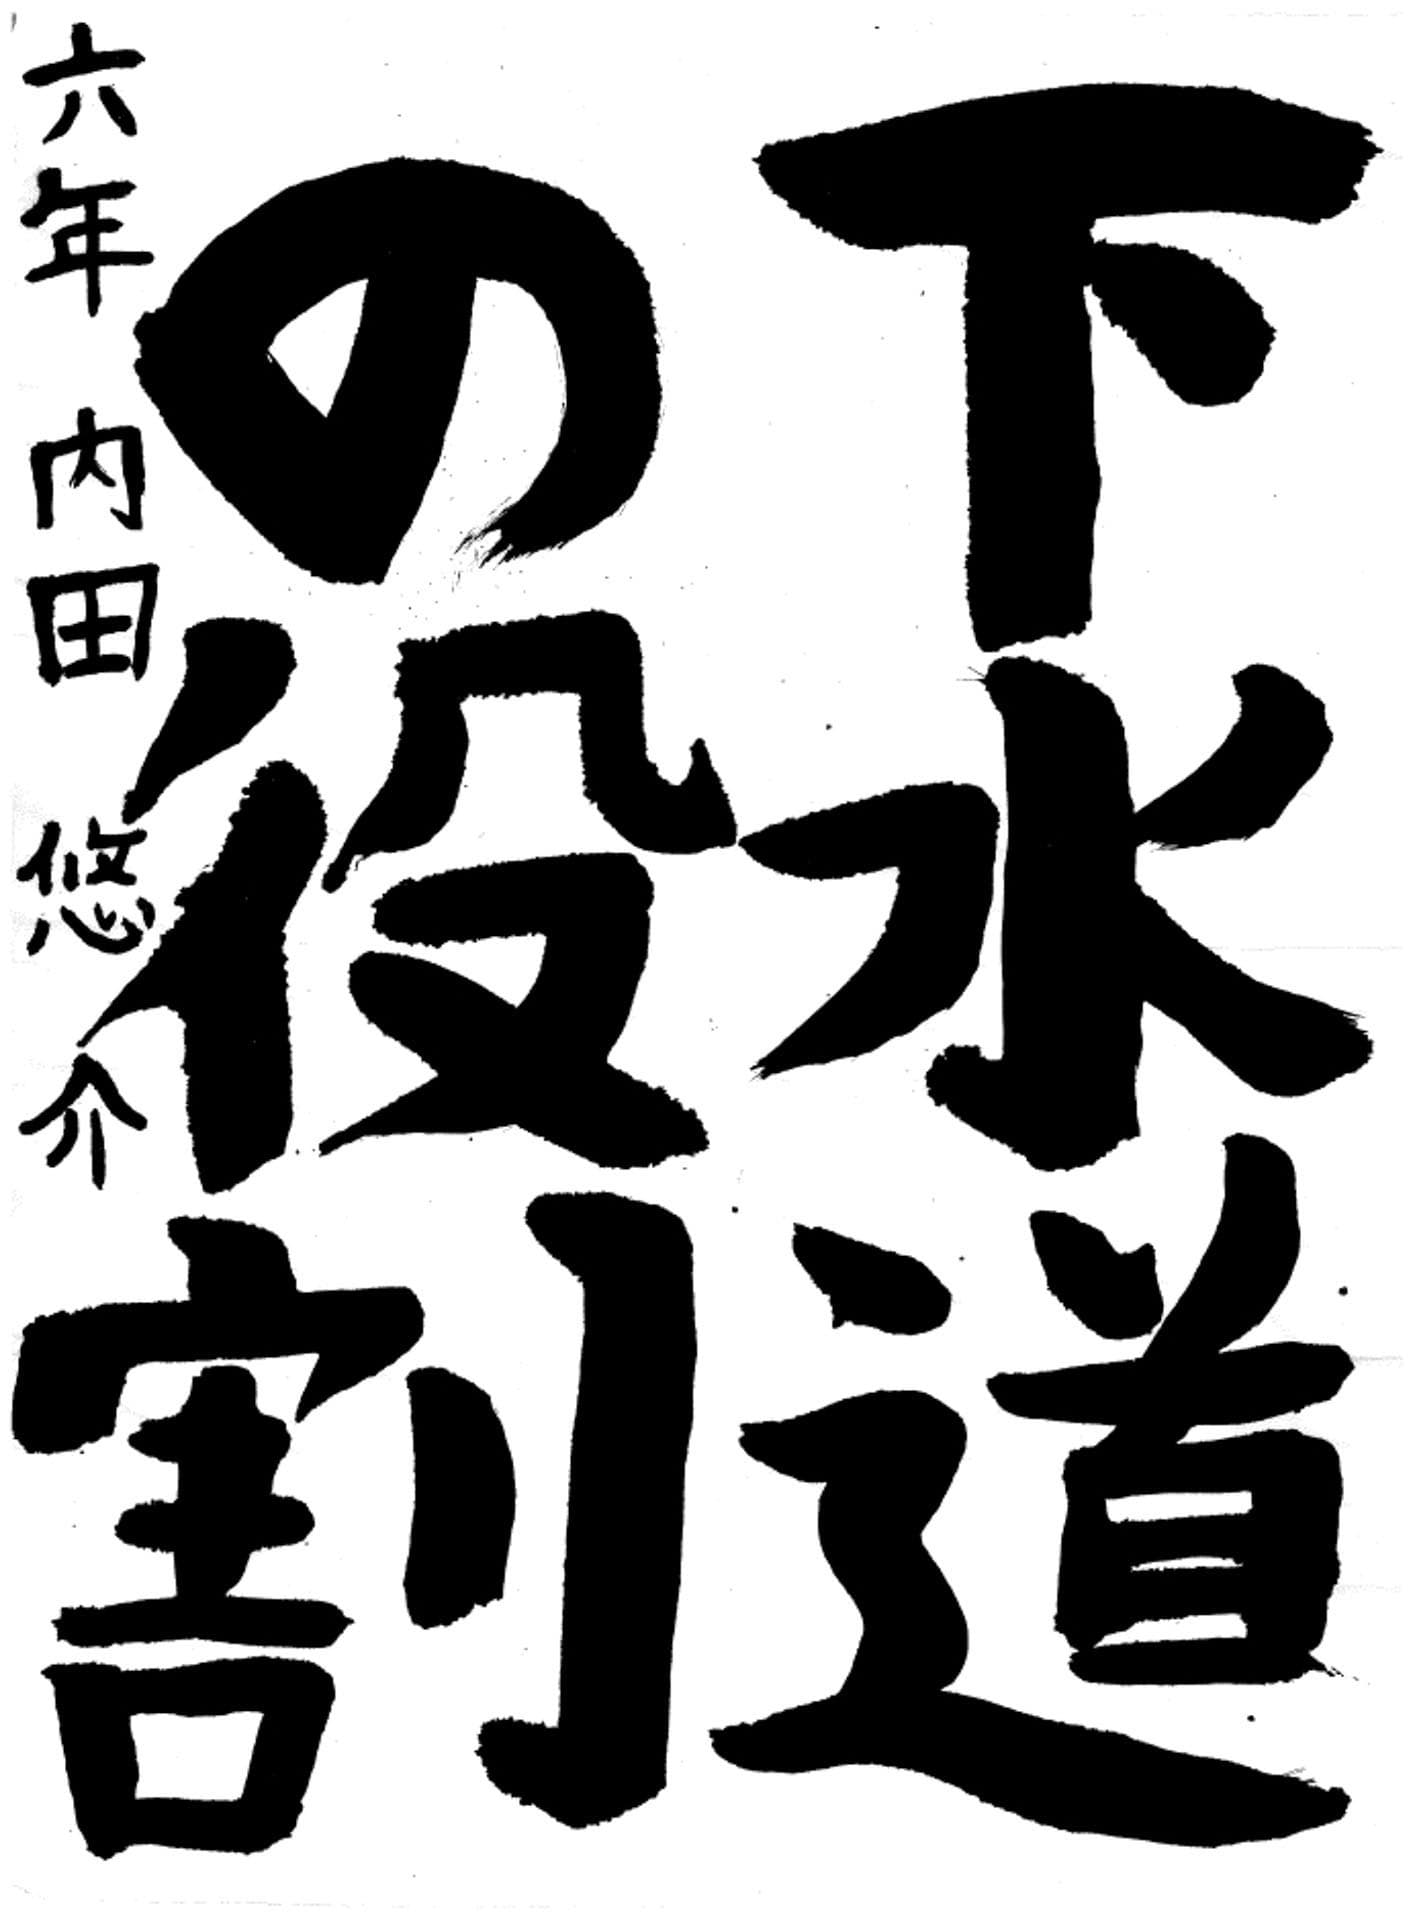 下水道
の役割
六年 内田 悠介